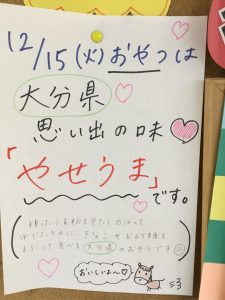 12/15(火)おやつは
大分県
思い出の味
「やせうま」
です。
練った小麦粉を平たくのばして
ゆでたものに、きなこやお砂糖を
まぶして食べる大分県のおやつです
おいしいよ〜